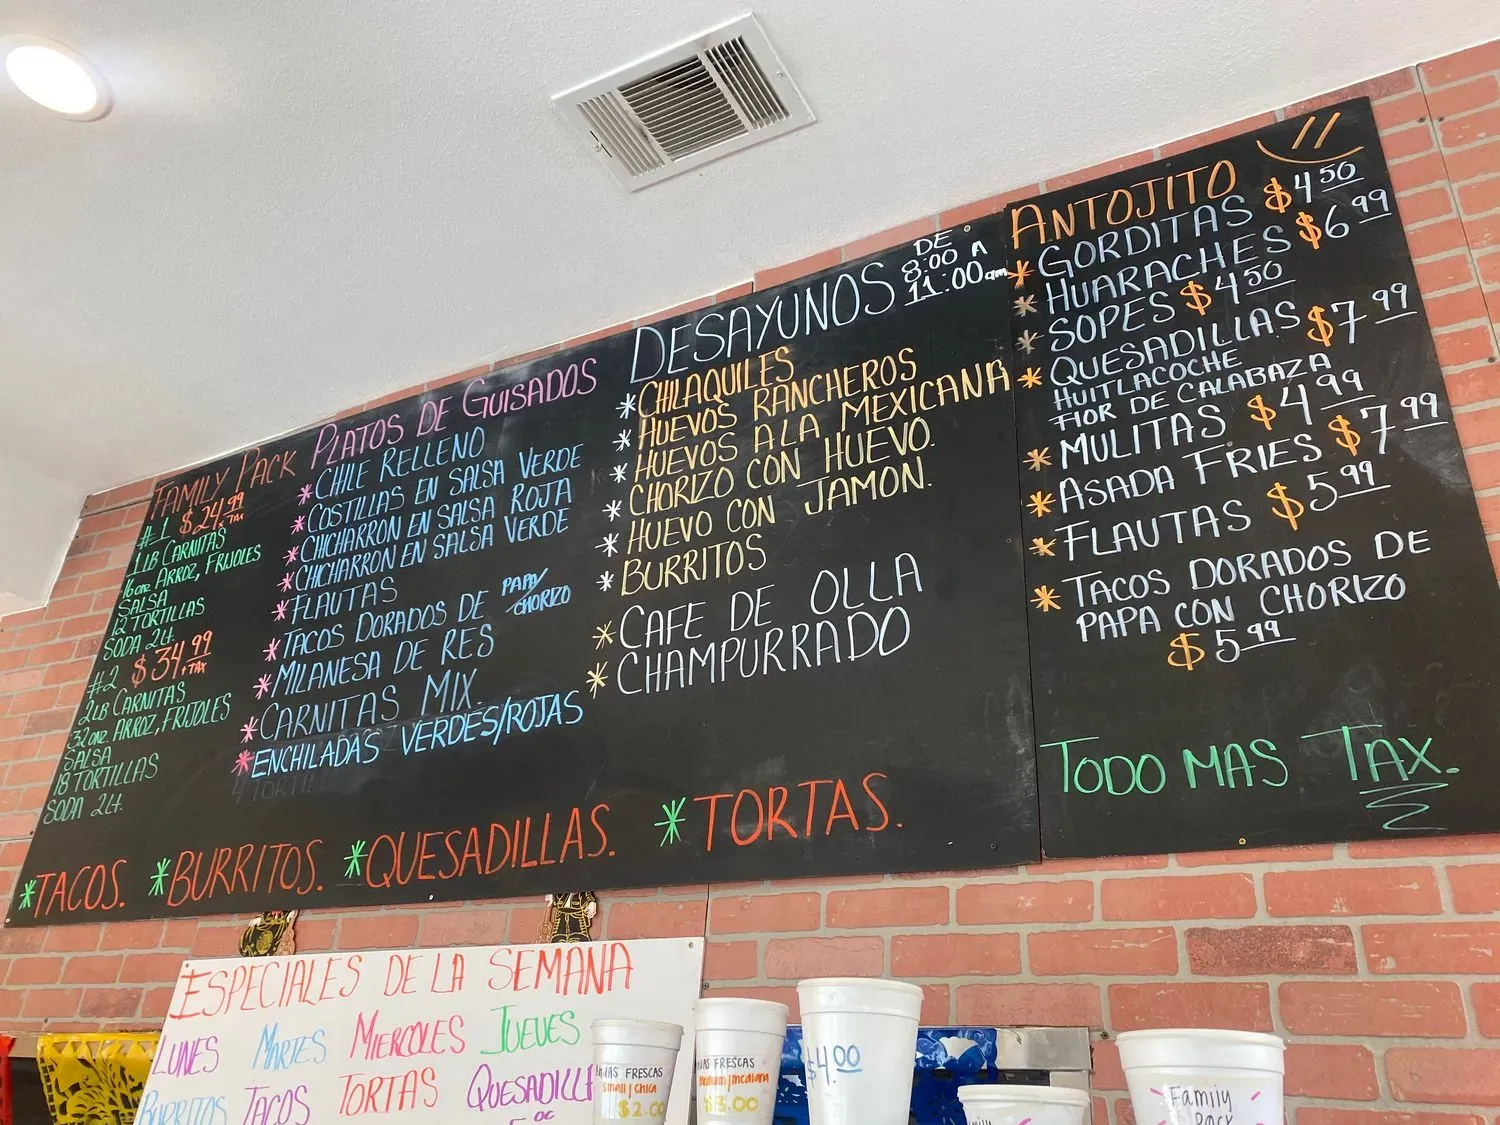 FAMILY PACK
#1 $24.99
+TAX
1 LB CARNITAS
16onz ARROZ, FRIJOLES
SALSA
12 TORTILLAS
SODA 2Lt.
#2 $34.99
+TAX
2LB CARNITAS
32onz ARROZ, FRIJOLES
SALSA
18 TORTILLAS
SODA 2Lt.
PLATOS DE GUISADOS
*CHILE RELLENO
*COSTILLAS EN SALSA VERDE
*CHICHARRON EN SALSA ROJA
*CHICHARRON EN SALSA VERDE
*FLAUTAS
*TACOS DORADOS DE PAPA/CHORIZO
*MILANESA DE RES
*CARNITAS MIX.
*ENCHILADAS VERDES/ROJAS
DESAYUNOS
DE
8:00 A
11:00am
*CHILAQUILES
*HUEVOS RANCHEROS
*HUEVOS A LA MEXICANA
*CHORIZO CON HUEVO.
*HUEVO CON JAMON.
*BURRITOS
*CAFE DE OLLA
*CHAMPURRADO
*TACOS. *BURRITOS. *QUESADILLAS. *TORTAS.
ANTOJITO
*GORDITAS $4.50
*HUARACHES $6.99
*SOPES $4.50
*QUESADILLAS $7.99
HUITLACOCHE
FLOR DE CALABAZA
*MULITAS $4.99
*ASADA FRIES $7.99
*FLAUTAS $5.99
*TACOS DORADOS DE
PAPA CON CHORIZO
$5.99
TODO MAS TAX.
ESPECIALES DE LA SEMANA
LUNES MARTES MIERCOLES JUEVES
BURRITOS TACOS TORTAS QUESADILLA
FRESCAS
small/chica
$2.00
FRESCAS
medium/mediana
$3.00
$4.00
Family
Pack